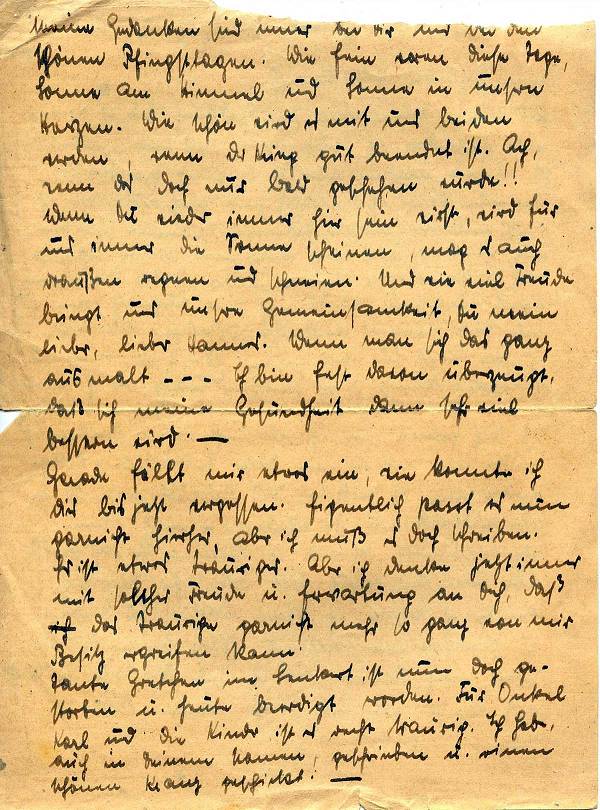 Meine Gedanken sind immer bei dir und bei den
schönen Pfingsttagen. Wie fein waren diese Tage,
Sonne am Himmel und Sonne in unsern
Herzen. Wie schön wird es mit uns beiden
werden, wenn der Krieg gut beendet ist. Ach,
wenn das doch nur bald geschehen würde!!
Wenn du wieder immer hier sein wirst, wird für
uns immer die Sonne scheinen, mag es auch
draußen regnen und schneien. Und wie viel Freude
bringt uns unsre Gemeinsamkeit, du mein
lieber, lieber Hannes. Wenn man sich das ganz
ausmalt --- Ich bin fest davon überzeugt,
daß sich meine Gesundheit dann sehr viel
bessern wird. —
Gerade fällt mir etwas ein, wie konnte ich
dies bis jetzt vergessen. Eigentlich passt es nun
garnicht hierher, aber ich muß es doch schreiben.
Es ist etwas trauriges. Aber ich denke jetzt immer
mit solcher Freude u. Erwartung an dich, daß
ich das Traurige garnicht mehr so ganz von mir
Besitz ergreifen kann.
Tante Gretchen im ist nun doch ge-
storben u. heute beerdigt worden. Für Onkel
Karl und die Kinder ist es recht traurig. Ich habe,
auch in deinem Namen, geschrieben u. einen
schönen Kranz geschickt. —